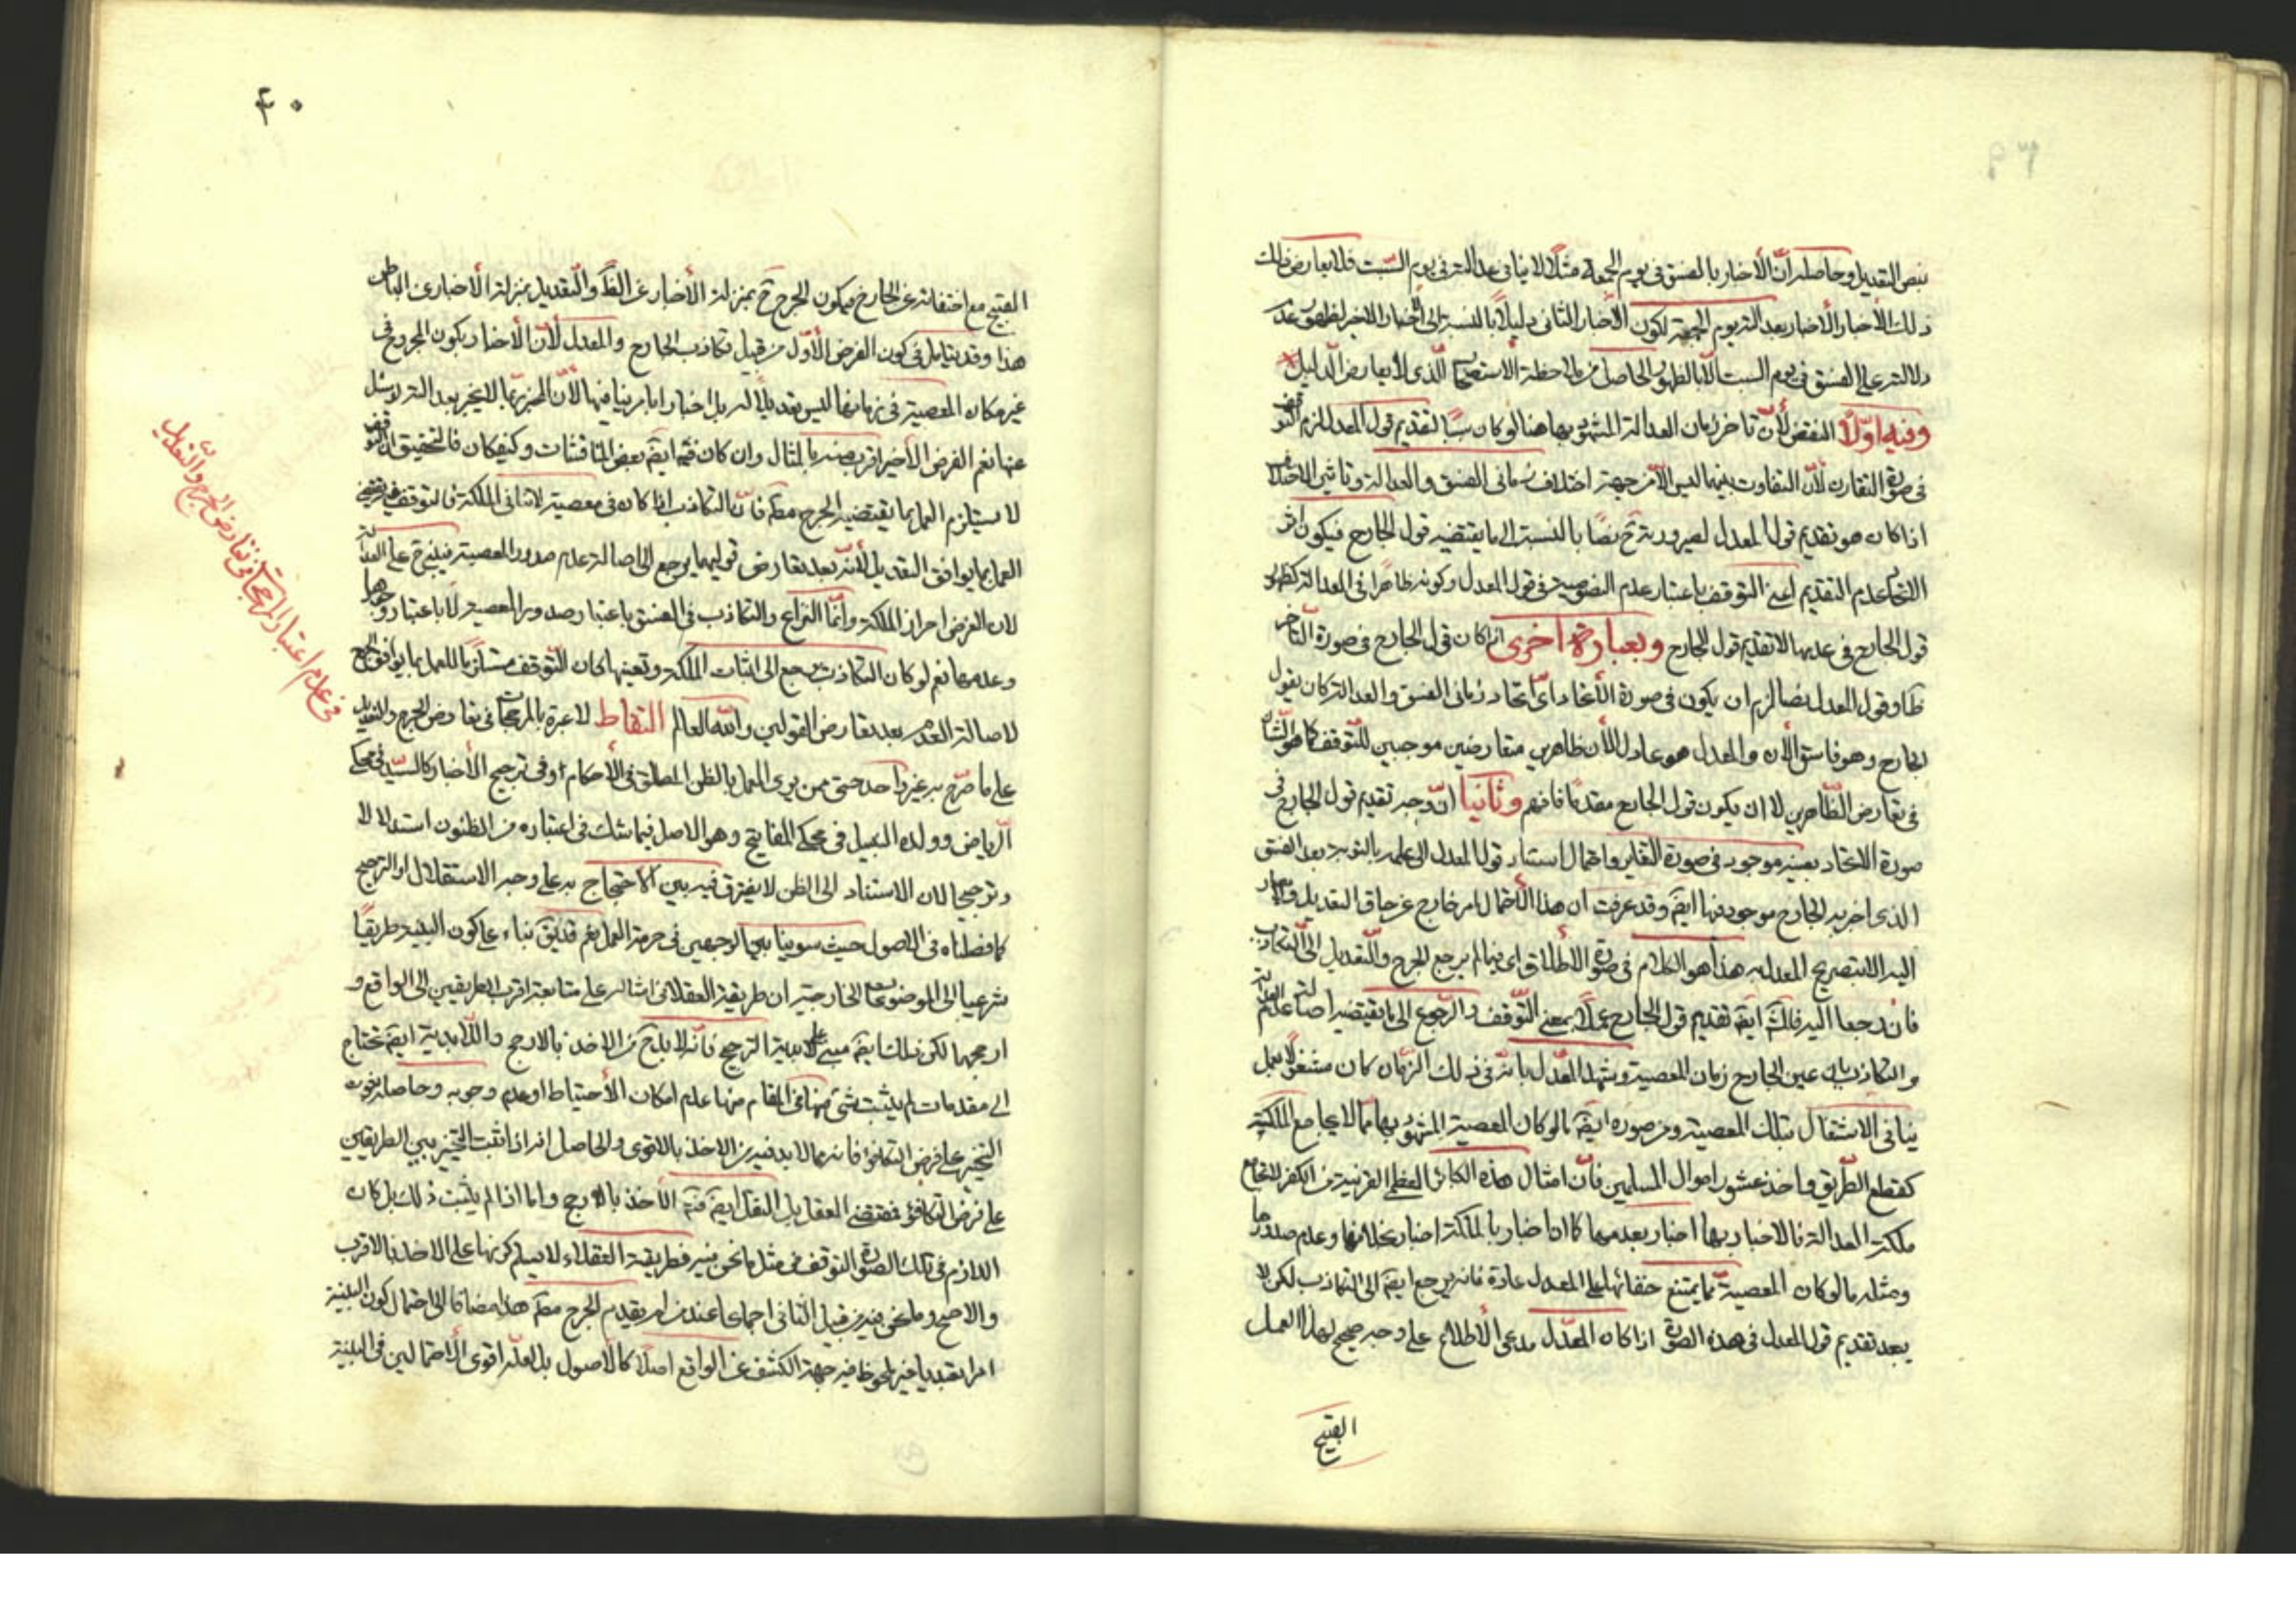 بنص التعديل وحاصله ان الأخبار بالفسق فى يوم الجمعة مثلا لا ينافى عدالته فى يوم السبت فلا يعارض ذلك
ذلك الأخبار الأخبار بعدالته يوم الجمعة لكون الأخبار الثانى دليلا بالنسبة الى الأخبار الاخر لظهور عدم
دلالته على الفسق فى يوم السبت الا بالظهور الحاصل من ملاحظة الاستصحاب الذى لا يعارض الدليل
وفيه اولا النقض لأن تاخر زمان العدالة المشهود بها هنا لو كان سببا لتقديم قول المعدل لزم التوقف
فى صورة التقارن لأن التفاوت بينهما ليس الا من جهة اختلاف زمانى الفسق والعدالة وتاثير الاختلاف
اذا كان هو تقديم قول المعدل لصيرورته ح نصا بالنسبة الى ما يقتضيه قول الجارح فيكون اثر
الاتحاد عدم التقديم اعنى التوقف باعتبار عدم النصوصية فى قول المعدل وكونه ظاهرا فى العدالة كظهور
قول الجارح فى عدمها لا تقديم قول الجارح وبعبارة اخرى اذا كان قول الجارح فى صورة التاخر
ظاهرا وقول المعدل نصا لزم ان يكون فى صورة الأتحاد اى اتحاد زمانى الفسق والعدالة كان يقول
الجارح هو فاسق الأن والمعدل هو عادل الأن ظاهرين متعارضين موجبين للتوقف كما هو الشان
فى تعارض الظاهرين لا ان يكون قول الجارح مقدما فافهم وثانيا ان وجه تقديم قول الجارح فى
صورة الاتحاد بعينه موجود فى صورة التغاير واحتمال استناد قول المعدل الى علمه بالتوبة بعد الفسق
الذى اخبر به الجارح موجود فيها ايضا وقد عرفت ان هذا الأحتمال امر خارج عن حاق التعديل
اليه الا بتصريح المعدل به هذا هو الكلام فى صورة الأطلاق اى فيما لم يرجع الجرح والتعديل الى التكاذب
فان رجعا اليه فالحق ايضا تقديم قول الجارح عملا بمعنى التوقف والرجوع الى ما يقتضيه اصالة عدم العدالة
والتكاذب بان عين الجارح زمان المعصية وشهد المعدل بانه فى ذلك الزمان كان مشغولا بعمل
ينافى الاشتغال بتلك المعصية ومن صوره ايضا ما لو كان المعصية المشهود بها مما لا يجامع الملكة
كقطع الطريق واخذ عشور اموال المسلمين فان امثال هذه الكبائر العظام القريبة من الكفر لا تجامع
ملكة العدالة فالاخبار بها اخبار بعدمها كما ان اخبار بالملكة اخبار بخلافها وعدم صدورها
ومثله ما لو كان المعصية مما يمتنع خفائها على المعدل عادة فانه يرجع ايضا الى التكاذب لكن لا
يبعد تقديم قول المعدل فى هذه الصورة اذا كان المعدل مدعى الأطلاع على وجه صحيح لهذا العمل
القبيح
۴۰
القبيح مع اختفائه عن الجارح فيكون الجرح ح بمنزلة الأخبار عن الظاهر والتعديل بمنزلة الأخبار عن الباطن
هذا وقد يتامل فى كون الفرض الأول من قبيل تكاذب الجارح والمعدل لأن الأخبار بكون المجروح فى
غير مكان المعصية فى زمانها ليس تعديلا له بل اخبار بما ينافيها لأن المخبر ربما لا يخبر بعدالته
عنها نعم الفرض الاخير اقرب منه بالمثال وان كان فيه ايضا بعض المناقشات وكيف كان فالتحقيق ان التوقف
لا يستلزم العمل بما يقتضيه الجرح مطلقا فان التكاذب اذا كان فى معصية لا تنافى الملكة فالتوقف فيه يقتضى
العمل بما يوافق التعديل لأنه بعد تعارض قوليهما يرجع الى اصالة عدم صدور المعصية فيبنى ح على العدالة
لان الفرض احراز الملكة وانما النزاع والتكاذب فى الفسق باعتبار صدور المعصية لا باعتبار وجودها
وعدمها نعم لو كان التكاذب يرجع الى اثبات الملكة ونفيها كان التوقف مستلزما للعمل بما يوافق الجرح
لاصالة العدم بعد تعارض القولين والله العالم التقاط لا عبرة بالمرجحات فى تعارض الجرح والتعديل
على ما صرح به غير واحد حتى ممن يرى العمل بالظن المطلق فى الأحكام اوفى ترجيح الأخبار كالسيد فى محكى
الرياض وولده النبيل فى محكى المفاتيح وهو الاصل فيما شك فى اعتباره من الظنون استدلالا
وترجيحا لان الاستناد الى الظن لا يفترق فيه بين الأحتجاج به على وجه الاستقلال او الترجيح
كما فصلناه فى الاصول حيث سوينا بين الوجهين فى حرمة العمل نعم قد يقال بناء على كون البينة طريقا
شرعيا الى الموضوعات الخارجية ان طريقة العقلاء فى امثاله على متابعة اقرب الطريقين الى الواقع و
ارجحهما لكن ذلك ايضا مبنى على لابدية الترجيح فانه لابد ح من الاخذ بالارجح واللابدية ايضا تحتاج
الى مقدمات لم يثبت شئ منها فى المقام منها عدم امكان الأحتياط او عدم وجوبه وحاصله ثبوت
التخيير على فرض التكافؤ فانه مما لابد فيه من الاخذ بالاقوى والحاصل انه اذا ثبت التخيير بين الطريقين
على فرض التكافؤ فمقتضى العقل بل النقل ايضا فيه الأخذ بالارجح واما اذا لم يثبت ذلك بل كان
اللازم فى تلك الصورة التوقف فى مثل ما نحن فيه فطريقة العقلاء لا يسلم كونها على الاخذ بالاقرب
والاصح وما نحن فيه من قبيل الثانى اجماعا عند من لم يقدم الجرح مطلقا هذا مضافا الى احتمال كون البينة
امرا تعبديا غير ملحوظ فيه جهة الكشف عن الواقع اصلا كالاصول بل لعله اقوى الأحتمالين فى البينة
فى عدم اعتبار المرجحات فى تعارض الجرح والتعديل